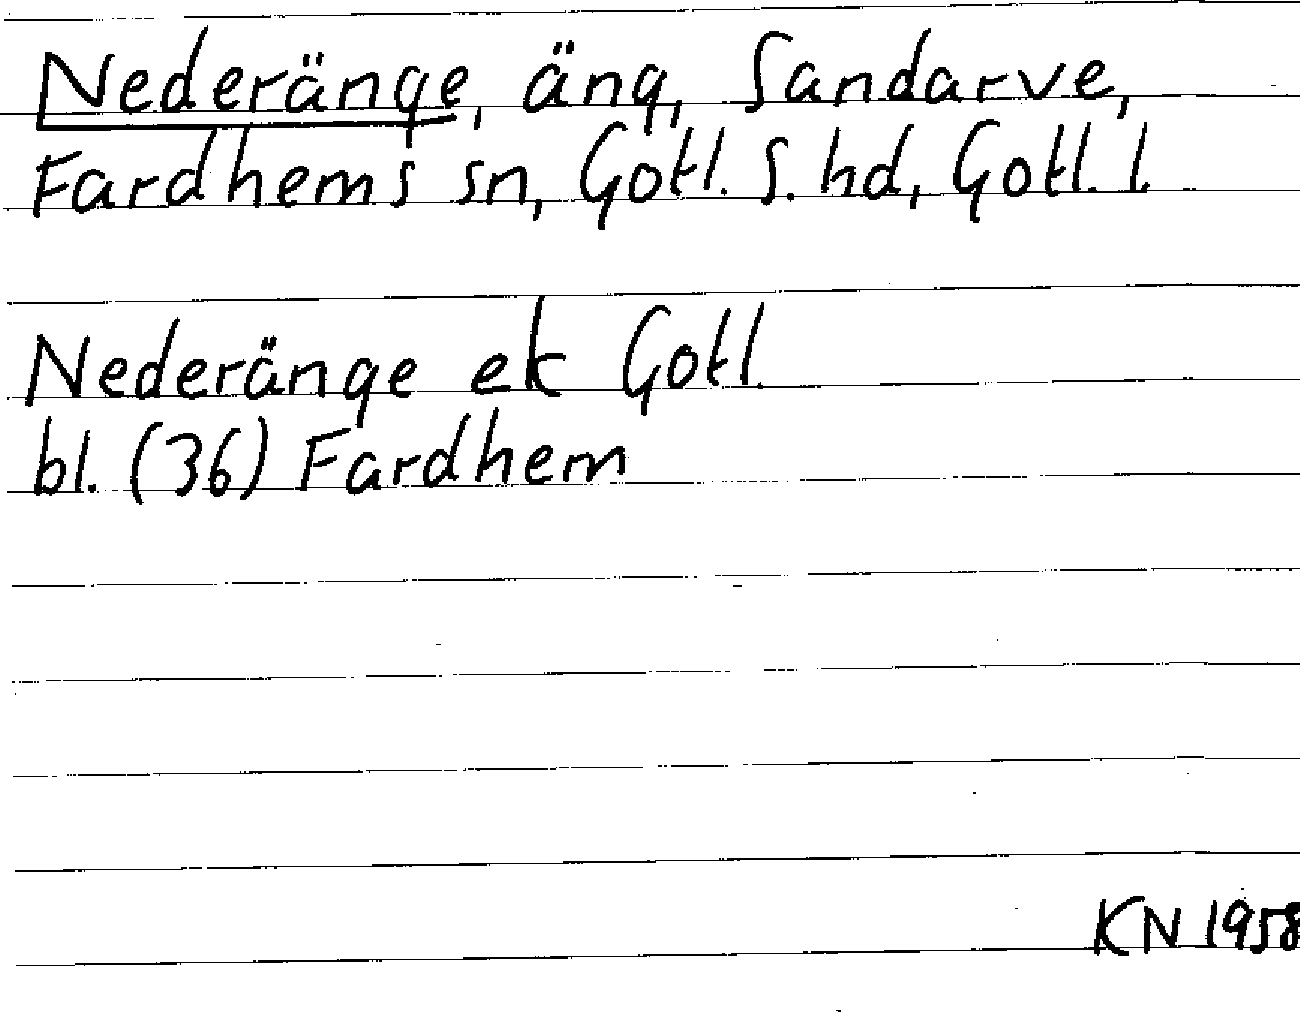 Nederänge, äng, Sandarve,
Fardhems sn, Gotl. S. hd, Gotl. l.
Nederänge ek Gotl.
bl. (36) Fardhem
KN 1958